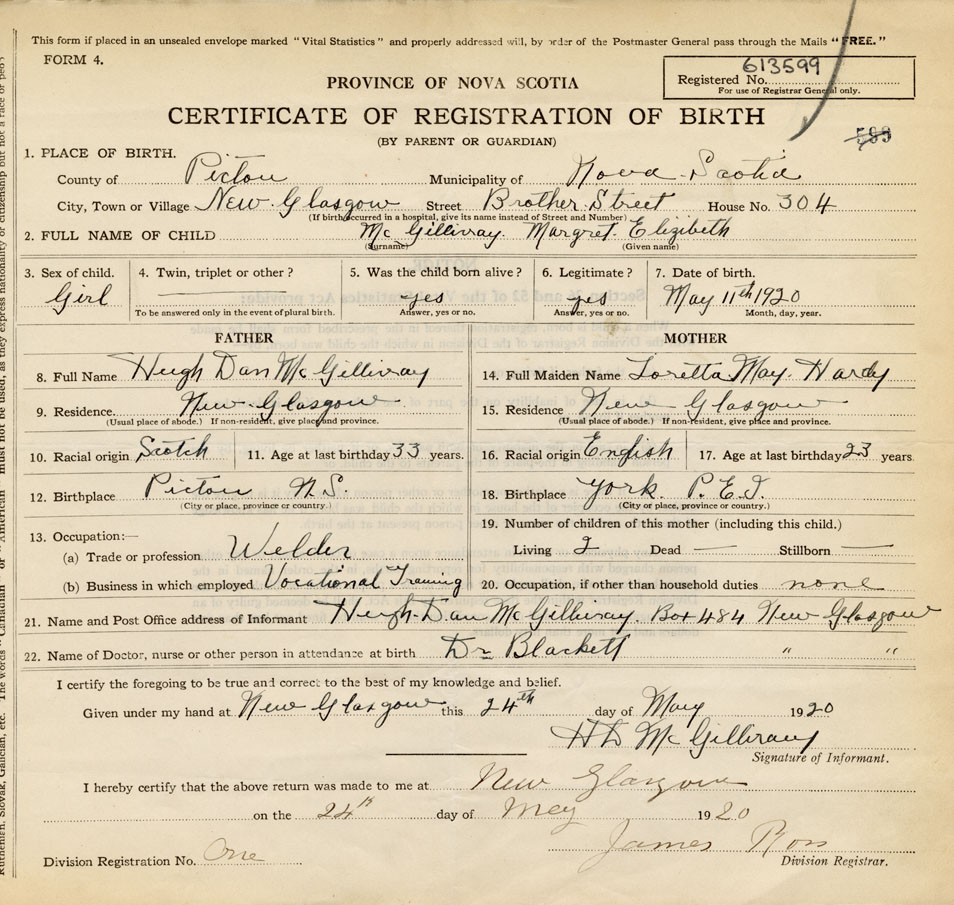 This form if placed in an unsealed envelope marked "Vital Statistics" and properly addressed will, by order of the Postmaster General pass through the Mails "FREE."
FORM 4.
613599
PROVINCE OF NOVA SCOTIA
Registered No.
For use of Registrar General only.
CERTIFICATE OF REGISTRATION OF BIRTH
(BY PARENT OR GUARDIAN)
1. PLACE OF BIRTH.
County of Pictou Municipality of Nova Scotia
City, Town or Village New Glasgow Street Brother Street House No. 304
(If birth occurred in a hospital, give its name instead of Street and Number)
2. FULL NAME OF CHILD Mc Gillivray. Margret. Elizibeth
(Surname) (Given name)
3. Sex of child. 4. Twin, triplet or other? 5. Was the child born alive? 6. Legitimate? 7. Date of birth.
Girl yes yes May 11th 1920
To be answered only in the event of plural birth. Answer, yes or no. Answer, yes or no. Month, day, year.
FATHER MOTHER
8. Full Name Hugh Dan McGillivray 14. Full Maiden Name Loretta May. Hardy
9. Residence. New Glasgow 15. Residence New Glasgow
(Usual place of abode.) If non-resident, give place and province. (Usual place of abode.) If non-resident, give place and province.
10. Racial origin Scotch 11. Age at last birthday 33 years. 16. Racial origin English 17. Age at last birthday 23 years
12. Birthplace Pictou N.S. 18. Birthplace York. P.E.I.
(City or place, province or country.) (City or place, province or country.)
19. Number of children of this mother (including this child.)
13. Occupation:—
(a) Trade or profession Welder Living 2 Dead — Stillborn —
(b) Business in which employed Vocational Training 20. Occupation, if other than household duties none
21. Name and Post Office address of Informant Hugh Dan McGillivray. Box 484 New Glasgow
22. Name of Doctor, nurse or other person in attendance at birth Dr Blackett " "
I certify the foregoing to be true and correct to the best of my knowledge and belief.
Given under my hand at New Glasgow this 24th day of May 1920
HD McGillivray
Signature of Informant.
I hereby certify that the above return was made to me at New Glasgow
on the 24th day of May 1920
James Ross
Division Registration No. One Division Registrar.